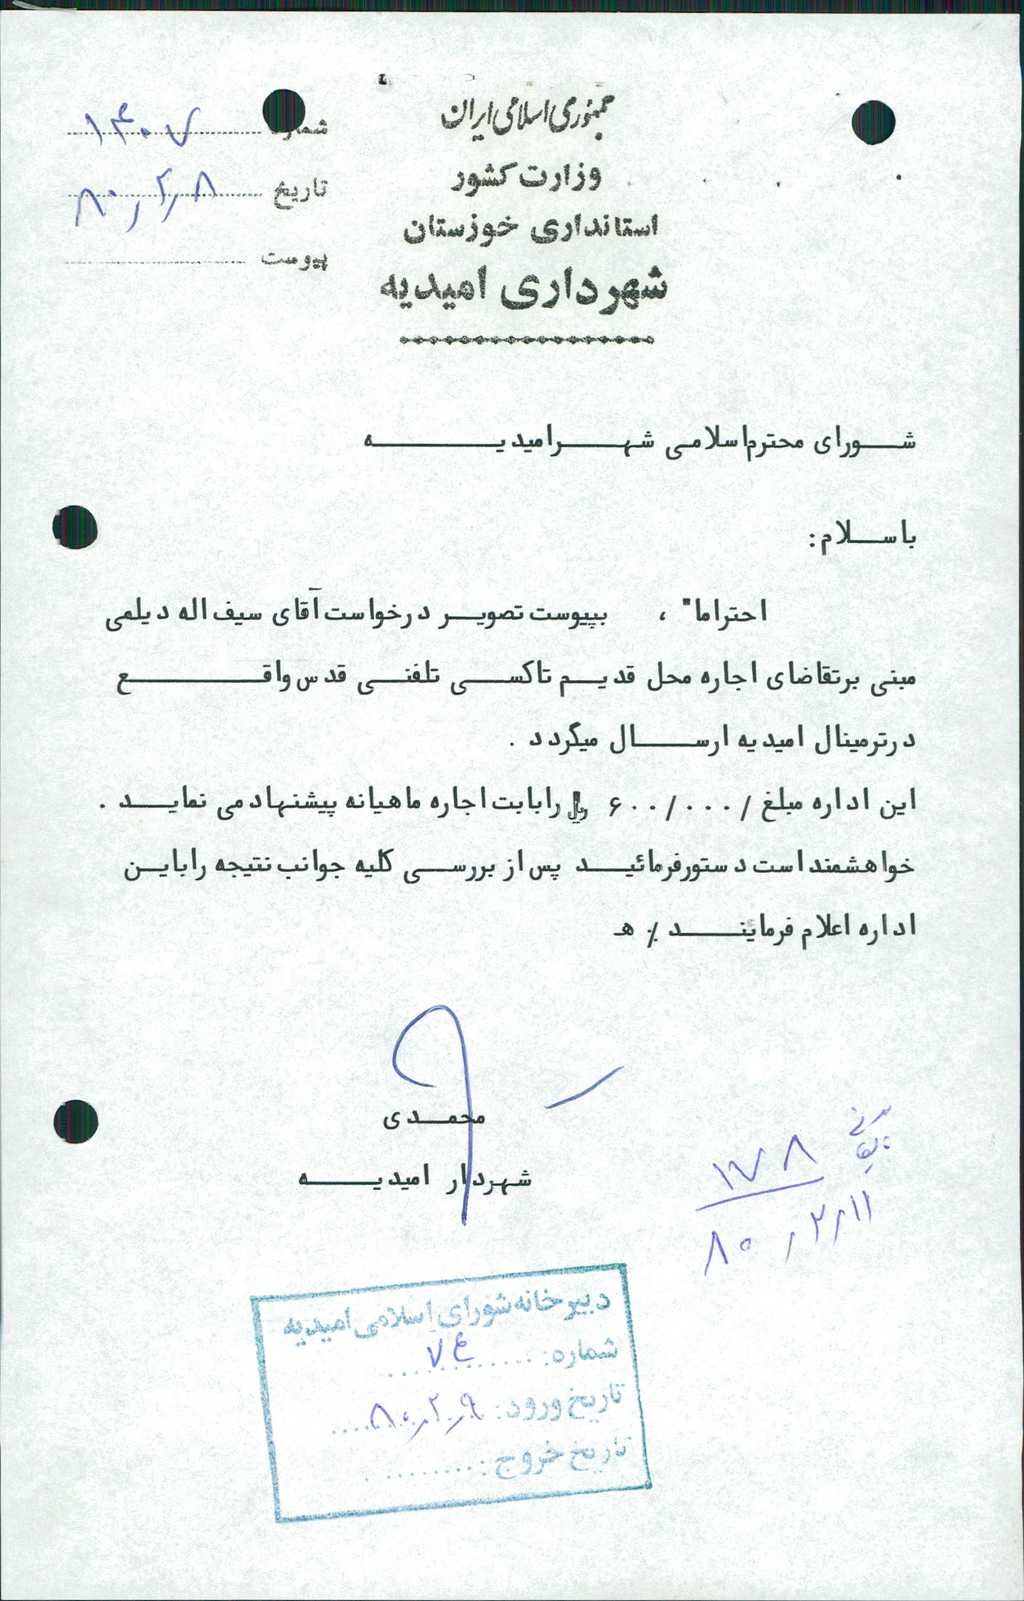 جمهوری اسلامی ایران
وزارت کشور
استانداری خوزستان
شهرداری امیدیه
شماره ۱۴۰۷
تاریخ ۸۰/۲/۸
پیوست
شورای محترم اسلامی شهر امیدیه
با سلام :
احتراما" ، بپیوست تصویر درخواست آقای سیف اله دیلمی
مبنی بر تقاضای اجاره محل قدیم تاکسی تلفنی قدس واقع
در ترمینال امیدیه ارسال میگردد .
این اداره مبلغ /۶۰۰/۰۰۰ ریال را بابت اجاره ماهیانه پیشنهاد می نماید .
خواهشمند است دستور فرمائید پس از بررسی کلیه جوانب نتیجه را باین
اداره اعلام فرمایند ٪ هـ
محمدی
شهردار امیدیه
بایگانی
۱۷۸
۸۰/۲/۱۱
دبیرخانه شورای اسلامی امیدیه
شماره: ۷۴
تاریخ ورود: ۸۰/۲/۹
تاریخ خروج: